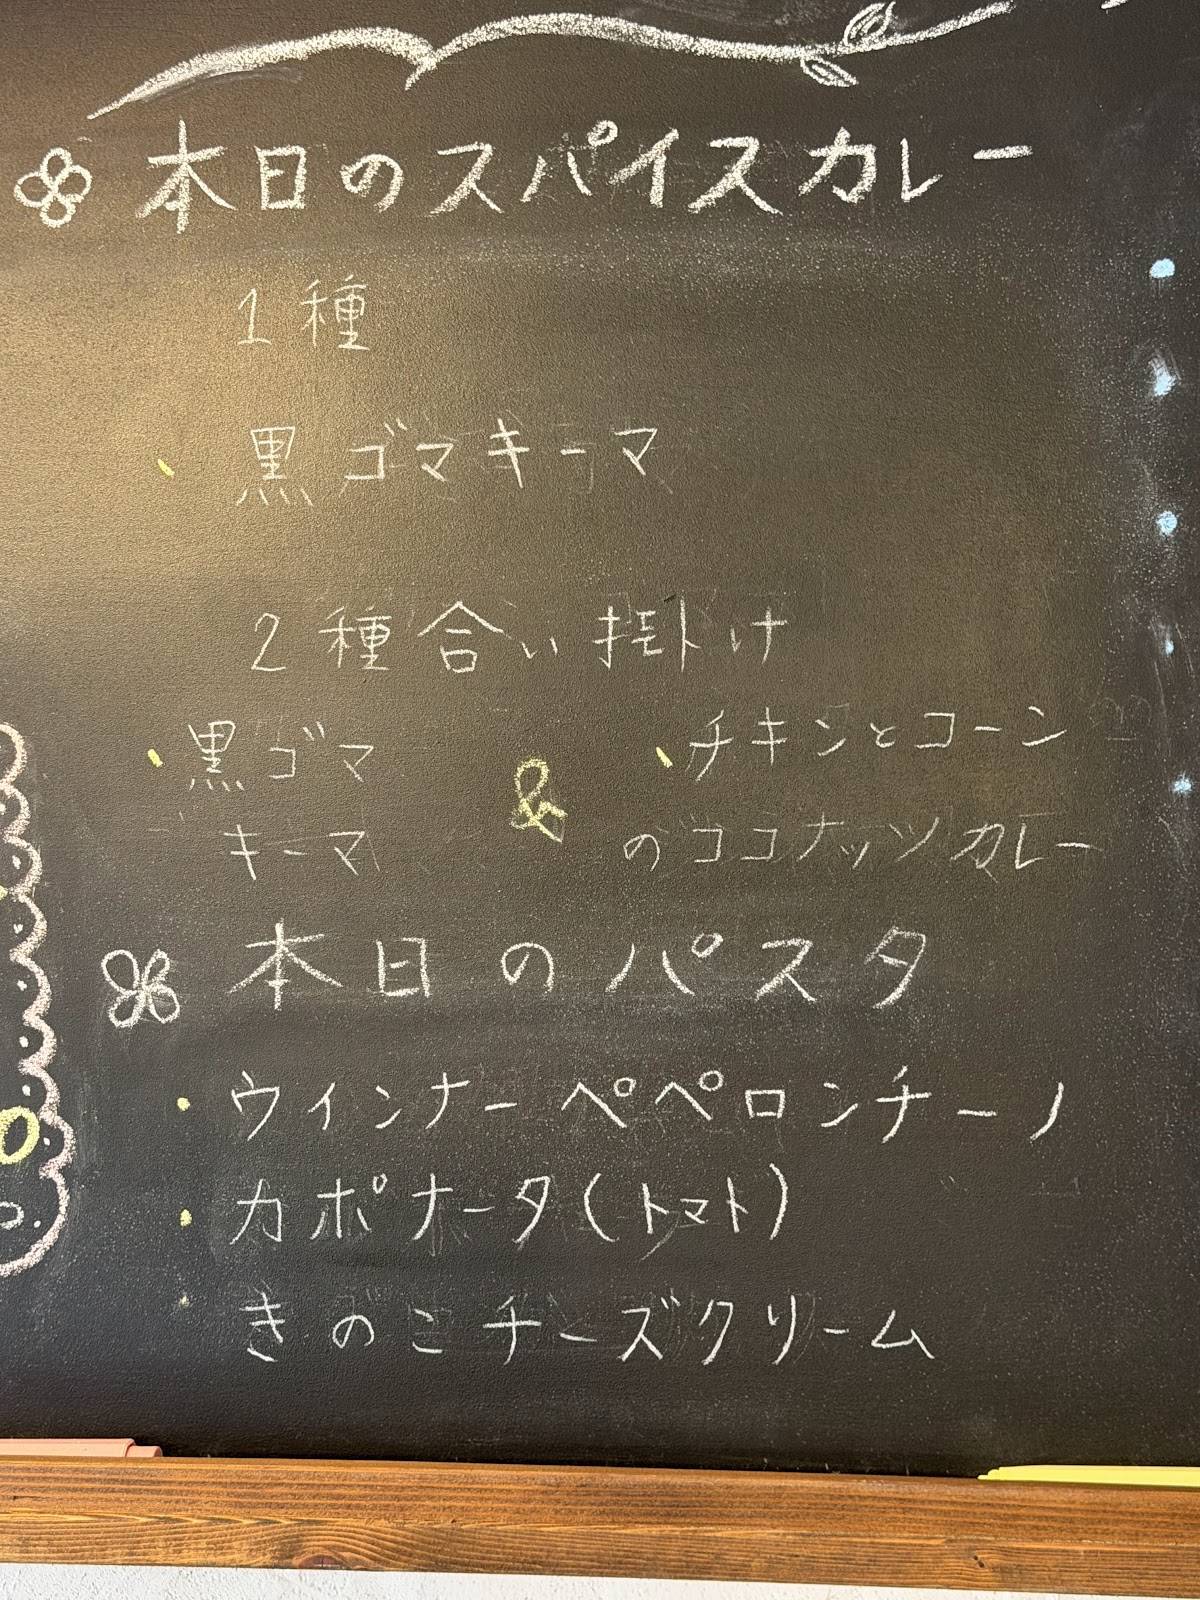 本日のスパイスカレー
1種
・黒ゴマキーマ
2種合い掛け
・黒ゴマ
キーマ
&
・チキンとコーン
のココナッツカレー
本日のパスタ
・ウインナーペペロンチーノ
・カポナータ(トマト)
・きのこチーズクリーム